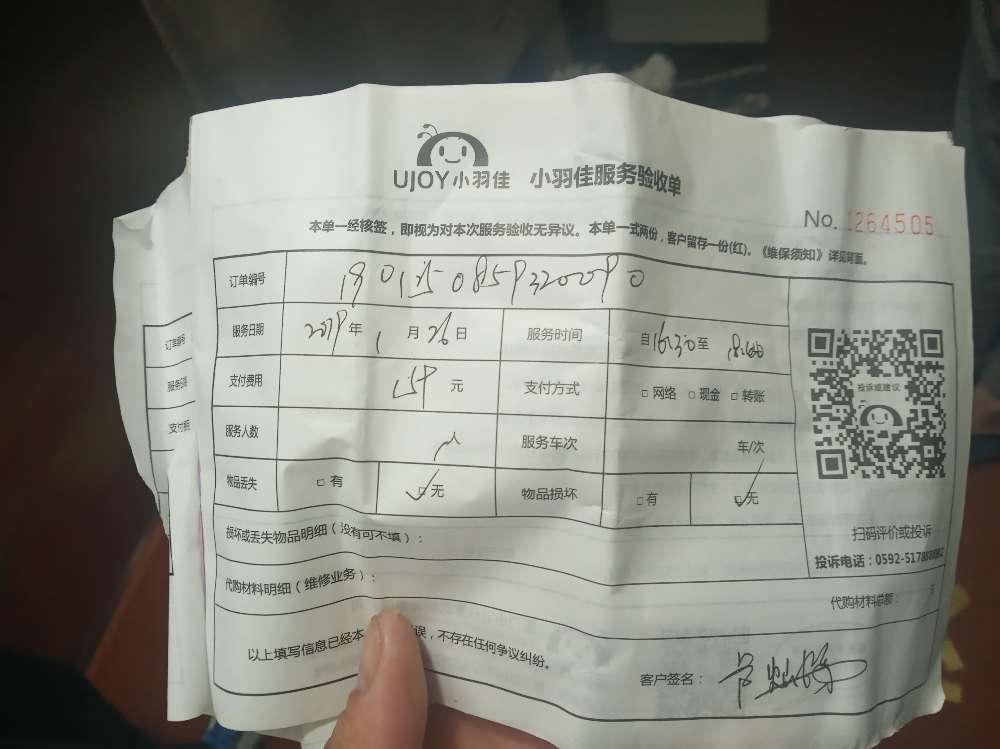 UJOY小羽佳 小羽佳服务验收单
No. 1264505
本单一经核签，即视为对本次服务验收无异议。本单一式两份，客户留存一份(红)。《维保须知》详见背面。
订单编号
服务日期 2019年 1 月 26 日 服务时间 自16:30至 18:00
支付费用 元 支付方式 □ 网络 □ 现金 □ 转账
服务人数 服务车次 车/次
物品丢失 □ 有 ☑ 无 物品损坏 □ 有 ☑ 无
投诉或建议
损坏或丢失物品明细（没有可不填）：
扫码评价或投诉
投诉电话：0592-517
代购材料明细（维修业务）：
代购材料总额：
以上填写信息已经本 误，不存在任何争议纠纷。
客户签名：
订单编号
服务日期
支付费